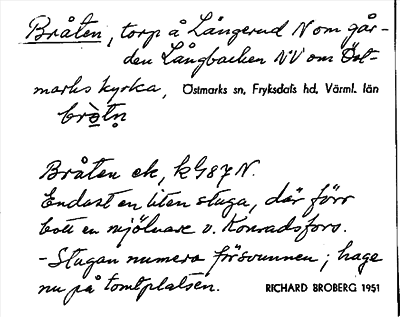 Bråten, torp å Långerud N om går-
den Långbacken NV om Öst-
marks kyrka, Östmarks sn, Fryksdals hd, Värml. län
bròtn̥
Bråten ek, kG87N.
Endast en liten stuga, där förr
bott en mjölnare v. Konradsfors.
- Stugan numera försvunnen; hage
nu på tomtplatsen. RICHARD BROBERG 1951